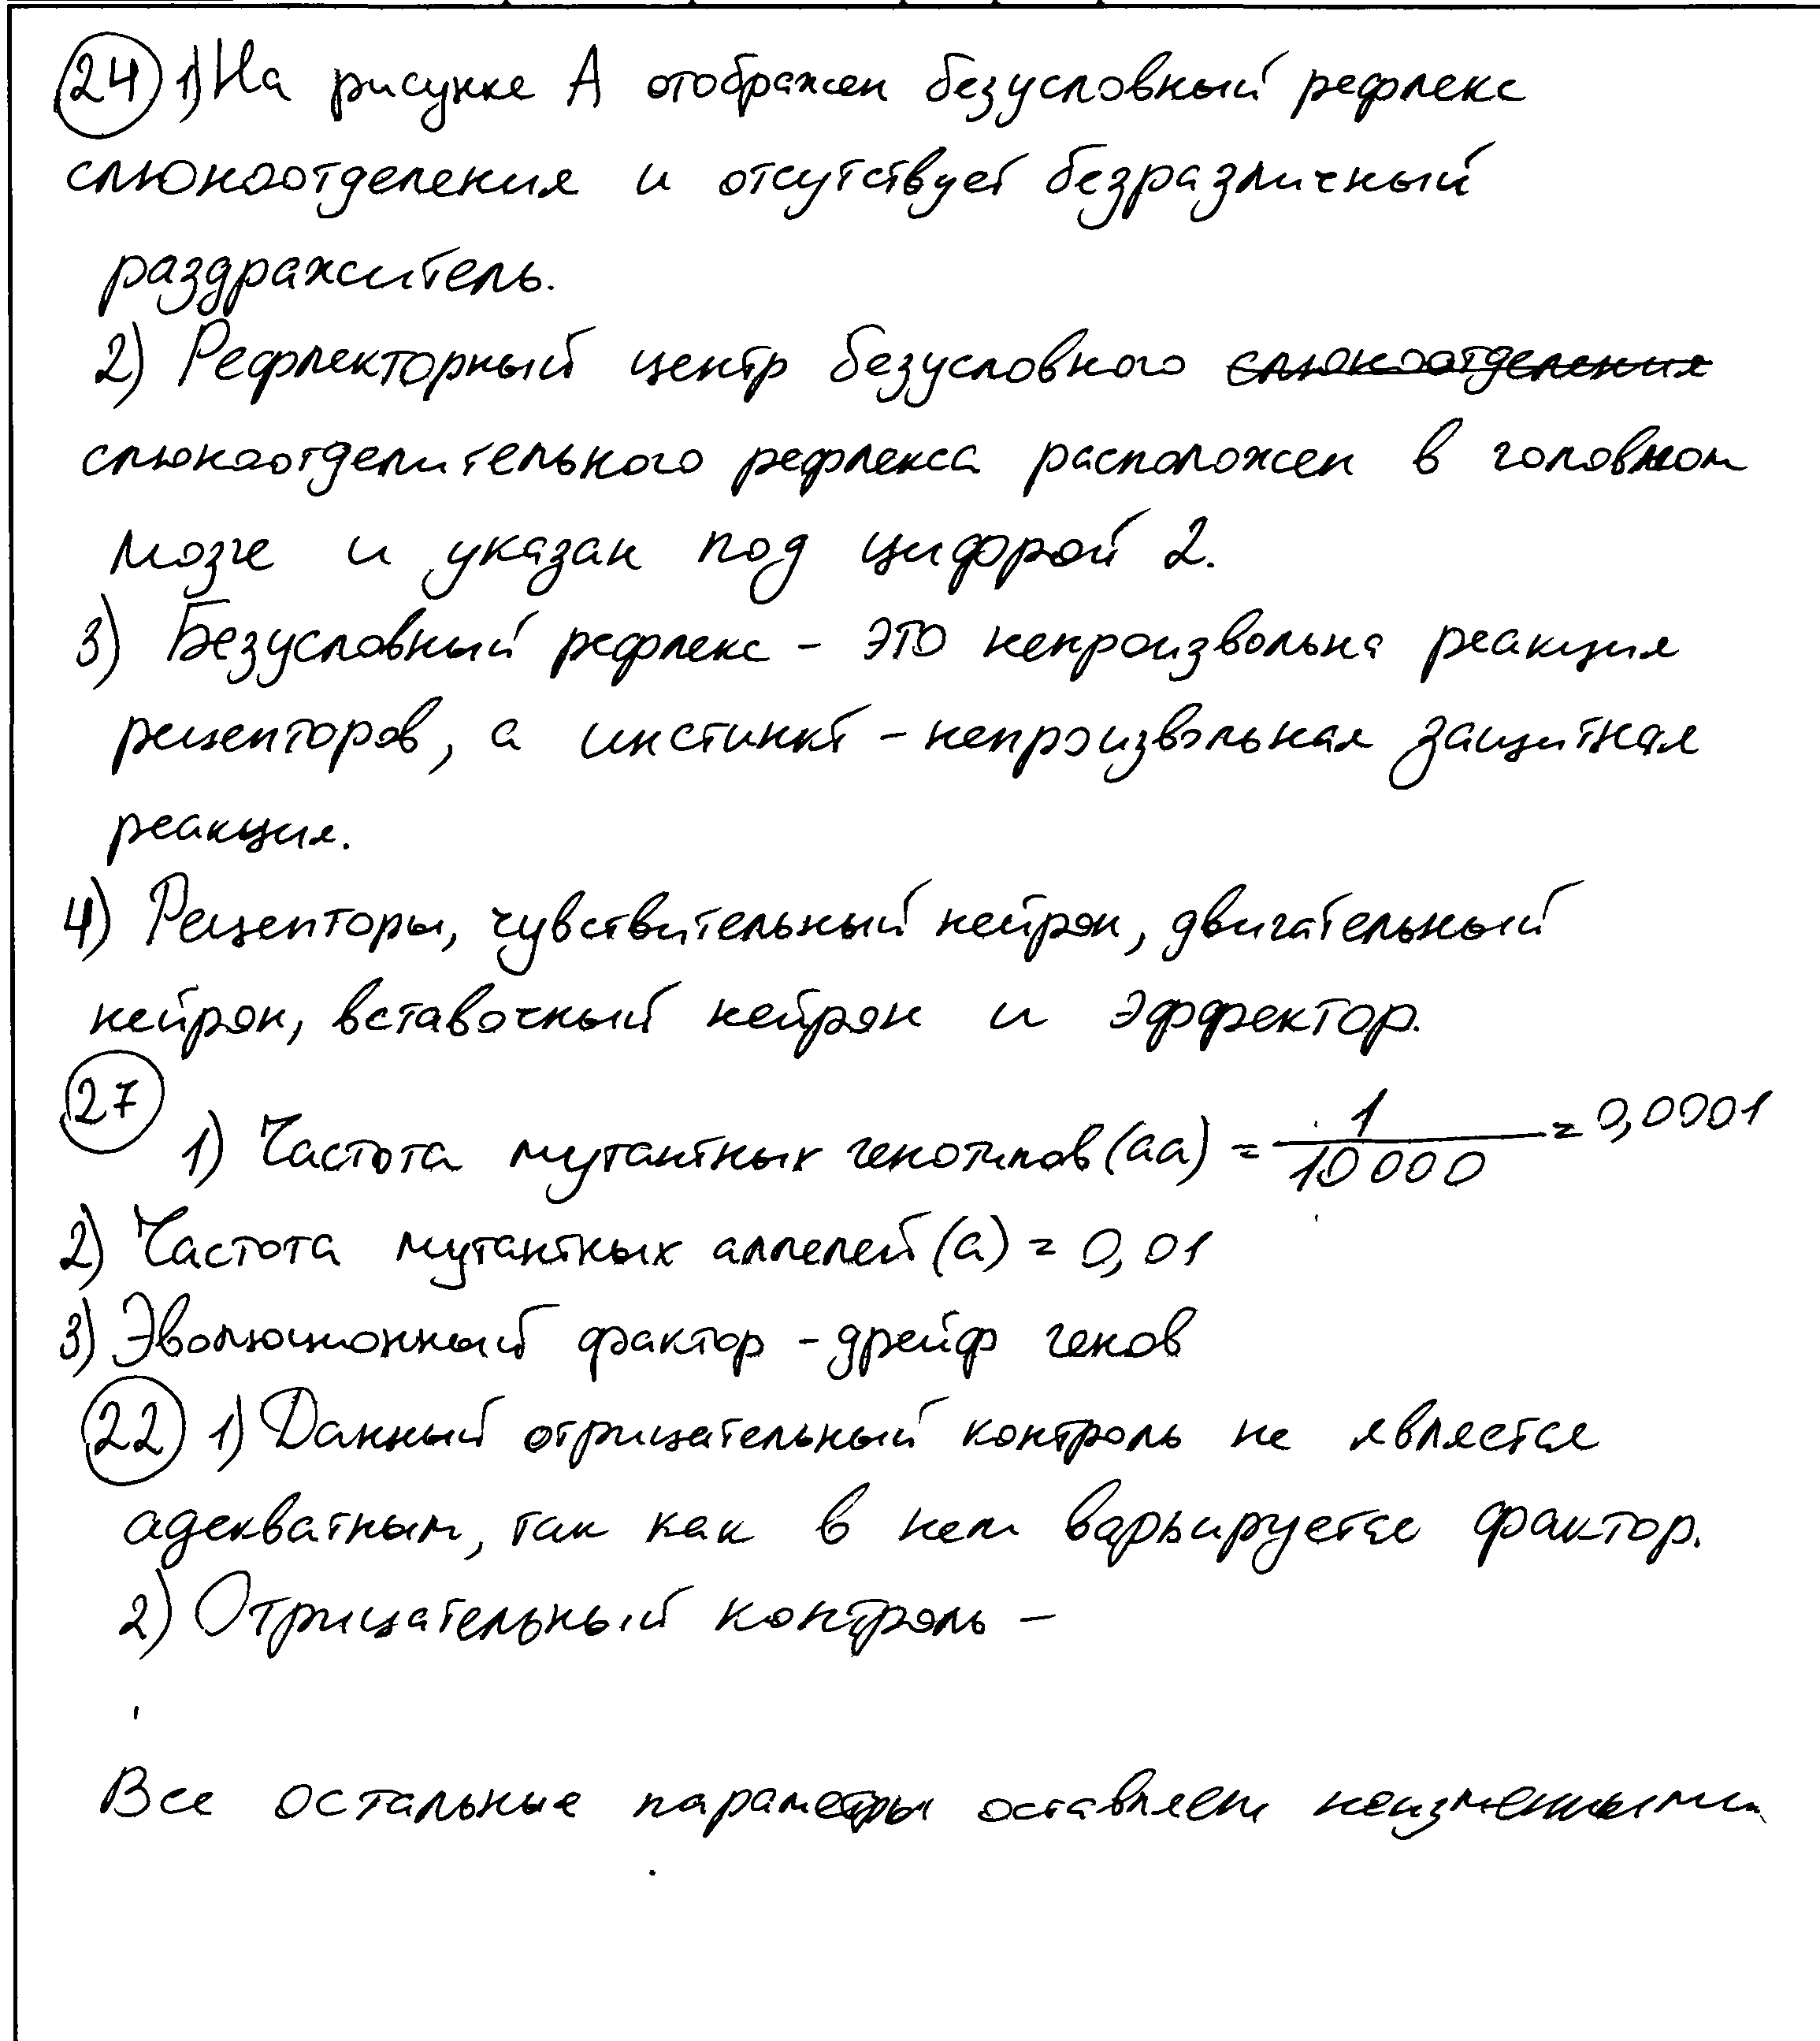 24 1) На рисунке А отображен безусловный рефлекс
слюноотделения и отсутствует безразличный
раздражитель.
2) Рефлекторный центр безусловного слюноотделения
слюноотделительного рефлекса расположен в головном
мозге и указан под цифрой 2.
3) Безусловный рефлекс - это непроизвольна реакция
рецепторов, а инстинкт - непроизвольная защитная
реакция.
4) Рецепторы, чувствительный нейрон, двигательный
нейрон, вставочный нейрон и эффектор.
27
1) Частота мутантных генотипов (aa) = 1/10 000 = 0,0001
2) Частота мутантных аллелей (a) = 0,01
3) Эволюционный фактор - дрейф генов
22 1) Данный отрицательный контроль не является
адекватным, так как в нем варьируется фактор.
2) Отрицательный контроль -
Все остальные параметры оставляем неизменными.